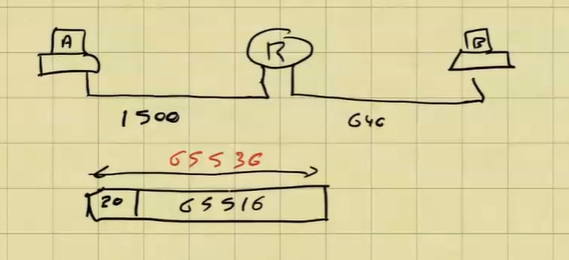 A R B
1500 646
65536
20 65516